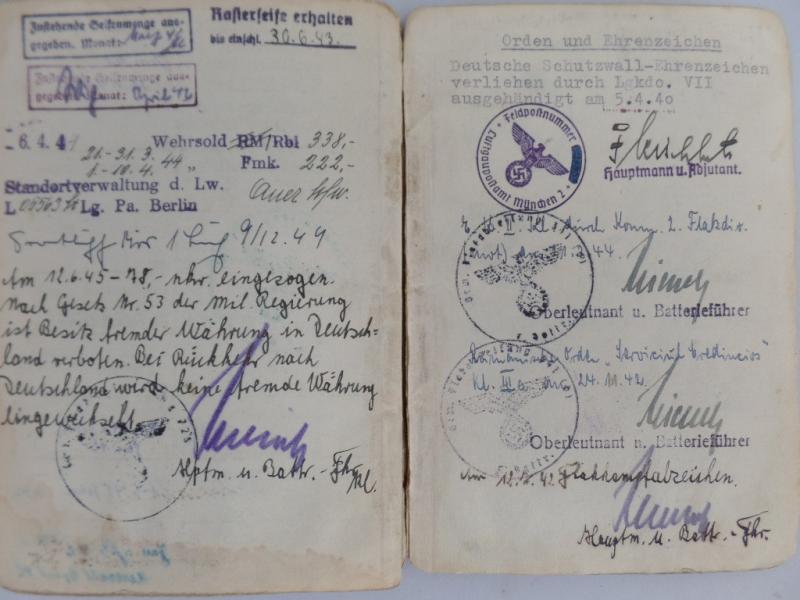 Zustehende Seifenmenge aus-
gegeben. Monat:
Rasierseife erhalten
bis einschl. 30.6.43.
Zustehende Seifenmenge aus-
gegeben. Monat: April 42
6.4.44 Wehrsold RM/Rbl 338,-
21.-31.3.44 Fmk. 222,-
1.-10.4. "
Standortverwaltung d. Lw.
L Lg. Pa. Berlin
9/12.44
Am 12.6.45 - 78,- nkr. eingezogen.
Nach Gesetz Nr. 53 der Mil. Regierung
ist Besitz fremder Währung in Deutsch-
land verboten. Bei Rückkehr nach
Deutschland wird keine fremde Währung
eingewechselt.
Hptm. u. Battr.-Fhr.
Orden und Ehrenzeichen
Deutsche Schutzwall-Ehrenzeichen
verliehen durch Lgkdo. VII
ausgehändigt am 5.4.40
Feldpostnummer
Luftgaupostamt München 2
Hauptmann u. Adjutant.
II. Kl. durch Komm. 2. Flakdiv.
44.
Oberleutnant u. Batterieführer
Rumänischer Orden „Serviciul Credincios"
Kl. III 24.11.42.
Oberleutnant u. Batterieführer
Am 12. 42 Flakkampfabzeichen.
Hauptm. u. Battr.-Fhr.